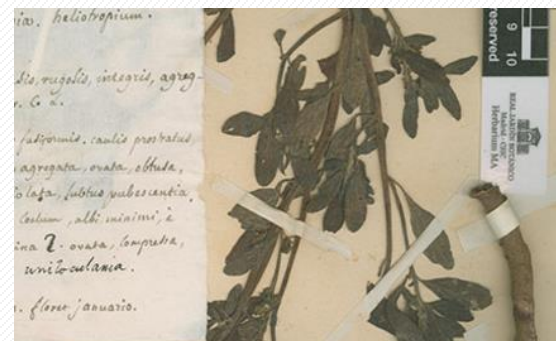 heliotropium.
rugosis, integris, agreg-
fusiformis. caulis prostratus,
agregata, ovata, obtusa,
lata, subtus pubescentia
albi minimi, è
2. ovata, compressa,
unilocularia.
floret januario.
reserved
9 10
REAL JARDÍN BOTÁNICO
Madrid - CSIC
Herbarium MA